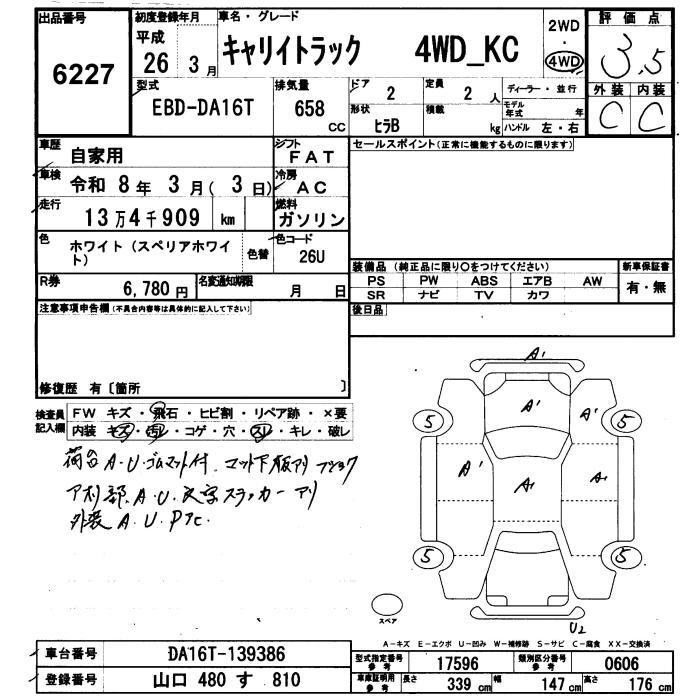 出品番号 初度登録年月 車名・グレード 2WD 評価点
6227 平成 26 3月 キャリイトラック 4WD_KC ・ 4WD 3.5
型式 排気量 ドア 定員 ディーラー・並行 外装 内装
EBD-DA16T 658 cc 2 2人 モデル年式 年 C C
形状 ヒラB 積載 kg ハンドル 左・右
車歴 自家用 シフト FAT セールスポイント(正常に機能するものに限ります)
車検 令和 8年 3月(3日) 冷房 AC
走行 13万4千909 km 燃料 ガソリン
色 ホワイト(スペリアホワイト) 色替 色コード 26U
装備品(純正品に限り○をつけてください) 新車保証書
R券 6,780円 名変通知期限 月 日 PS PW ABS エアB AW 有・無
SR ナビ TV カワ
注意事項申告欄(不具合内容等は具体的に記入して下さい) 後日品
修復歴 有〔箇所 〕
検査員記入欄 FW キズ・飛石・ヒビ割・リペア跡・×要
内装 キズ・汚レ・コゲ・穴・スレ・キレ・破レ
荷台 A・U・ゴムマット付 マット下板アリ
A・U・文字ステッカーアリ
外装 A・U・Pアセ
A1
A1 A1
5 5
A1 A1 A1
5 5
スペア U2
A-キズ E-エクボ U-凹み W-補修跡 S-サビ C-腐食 XX-交換済
車台番号 DA16T-139386 型式指定番号 参考 17596 類別区分番号 参考 0606
登録番号 山口 480 す 810 車庫証明用 参考 長さ 339 cm 幅 147 cm 高さ 176 cm